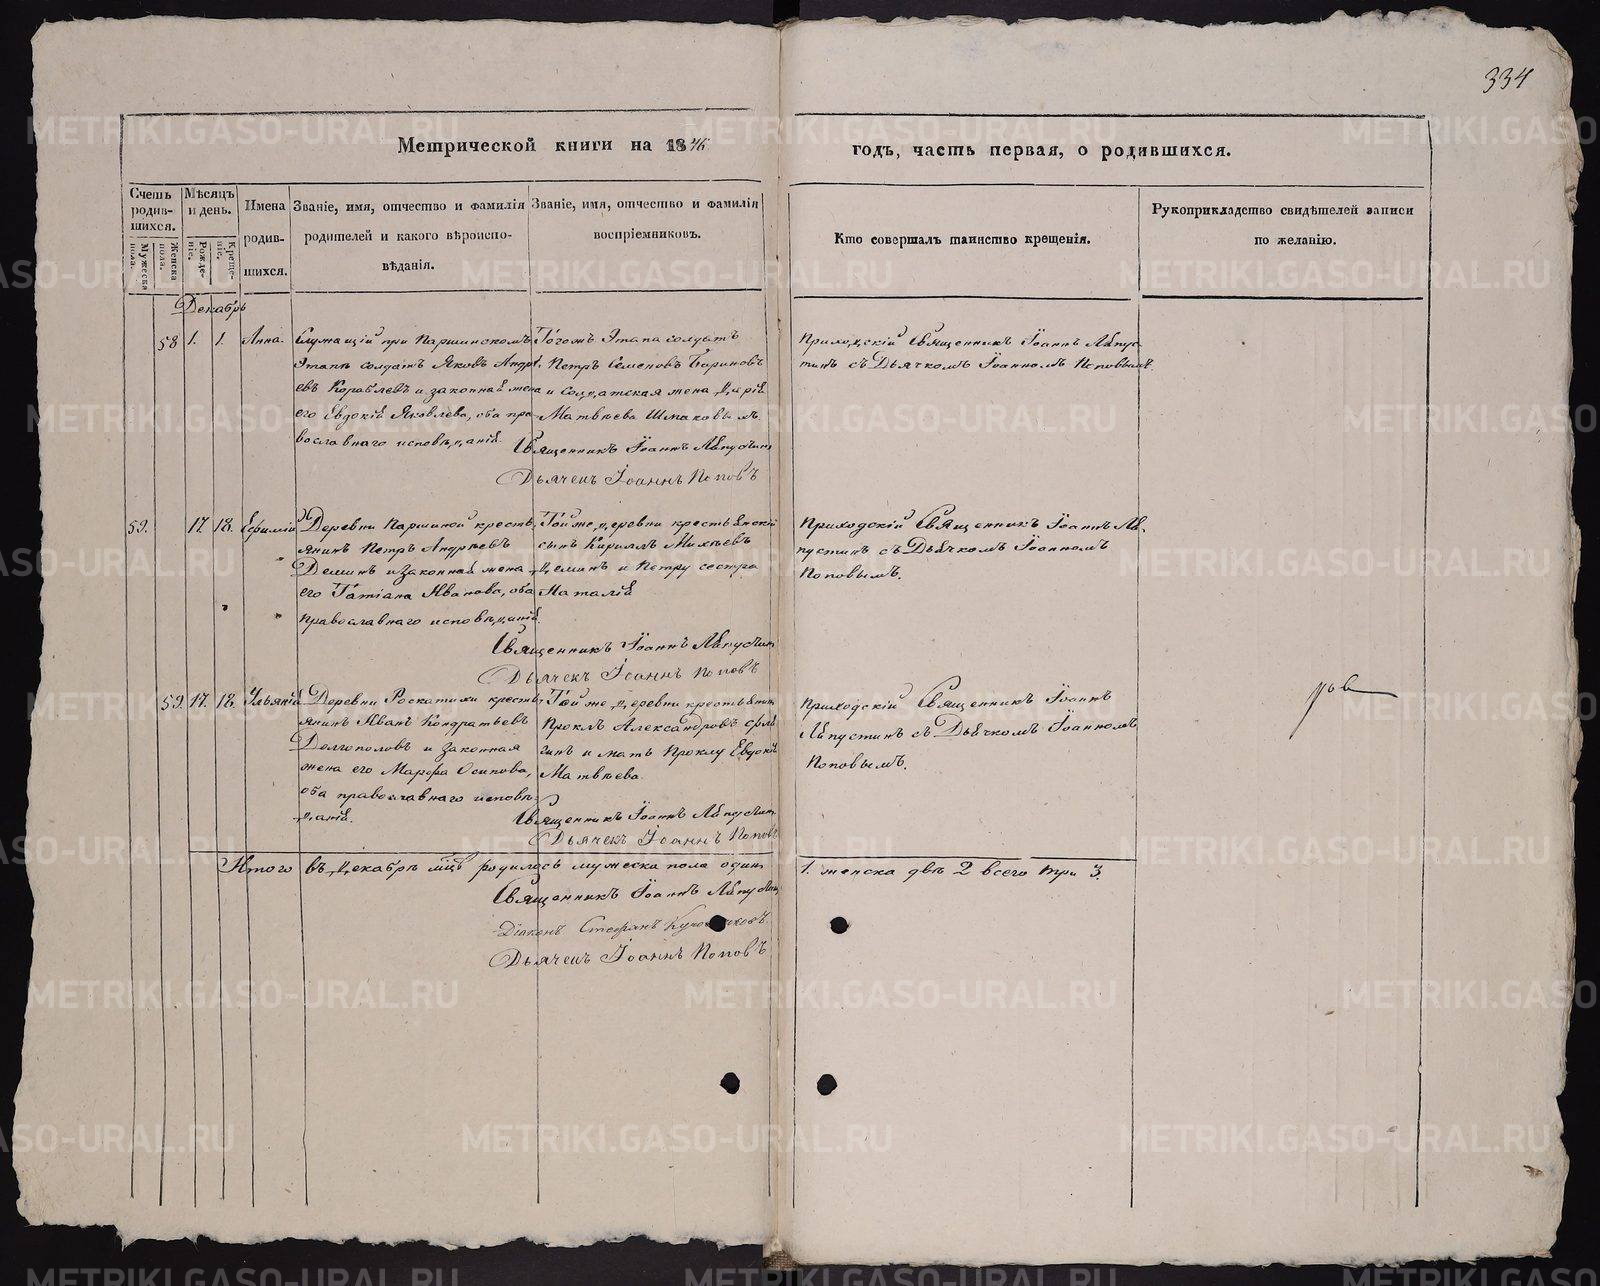 334
Метрической книги на 1846
годъ, часть первая, о родившихся.
Счетъ родившихся.
Мужеска пола.
Женска пола.
Мѣсяцъ и день.
Рожденіе.
Крещеніе.
Имена родившихся.
Званіе, имя, отчество и фамилія
родителей и какого вѣроиспо-
вѣданія.
Званіе, имя, отчество и фамилія
воспріемниковъ.
Кто совершалъ таинство крещенія.
Рукоприкладство свидѣтелей записи
по желанію.
Декабрь
58 1. 1. Анна.
Служащій при Паршинскомъ
Этапѣ солдатъ Яковъ Андре-
евъ Кораблевъ и законная жена
его Евдокія Яковлева, оба пра-
вославнаго исповѣданія.
Тогожъ Этапа солдатъ
Петръ Семеновъ Бариновъ
и Солдатская жена Дарія
Матвѣева Шмакова
Священникъ Іоаннъ
Дьячекъ Іоаннъ Поповъ
Приходскій Священникъ Іоаннъ
съ Дьячкомъ Іоанномъ Поповымъ
59. 17. 18. Ефимій
Деревни Паршиной кресть-
янинъ Петръ Андреевъ
Деминъ и законная жена
его Татіана Иванова, оба
православнаго исповѣданія.
Той же деревни крестьянскій
сынъ Кириллъ Михѣевъ
Деминъ и Петру сестра
Наталія
Священникъ Іоаннъ
Дьячекъ Іоаннъ Поповъ
Приходскій Священникъ Іоаннъ
съ Дьячкомъ Іоанномъ
Поповымъ.
59. 17. 18. Ульянія
Деревни Роскатихи кресть-
янинъ Иванъ Кондратьевъ
Долгополовъ и законная
жена его Марфа Осипова,
оба православнаго исповѣ-
данія.
Той же деревни крестьянинъ
Проклъ Александровъ
и мать Проклу Евдокія
Матвѣева.
Священникъ Іоаннъ
Дьячекъ Іоаннъ Поповъ
Приходскій Священникъ Іоаннъ
съ Дьячкомъ Іоанномъ
Поповымъ.
Итого въ Декабрѣ мцѣ родилось мужеска пола одинъ
1. женска двѣ 2 всего три 3.
Священникъ Іоаннъ
Діаконъ Стефанъ
Дьячекъ Іоаннъ Поповъ
METRIKI.GASO-URAL.RU